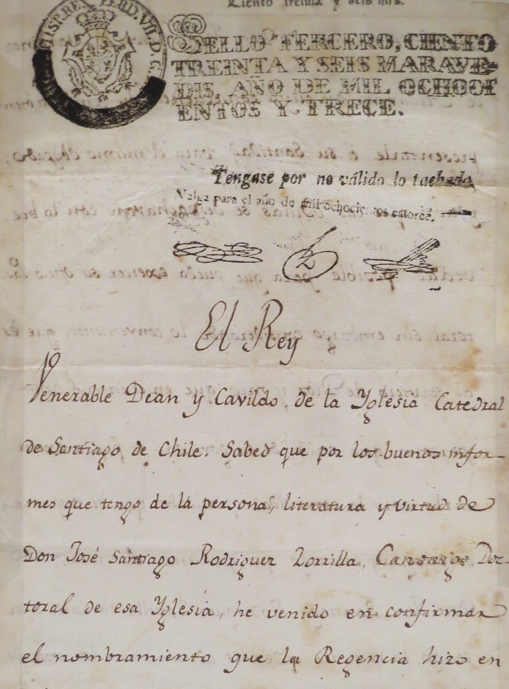 Ciento treinta y seis mrs.
HISP. REX. FERD. VII. D. G.
SELLO TERCERO, CIENTO
TREINTA Y SEIS MARAVE-
DIS, AÑO DE MIL OCHOCI
ENTOS Y TRECE.
Tengase por no válido lo tachado
Valga para el año de mil ochocientos catorce.
El Rey
Venerable Dean y Cavildo, de la Yglesia Catedral
de Santiago de Chile: Sabed que por los buenos infor-
mes que tengo de la persona, literatura y virtud de
Don José Santiago Rodriguez Zorrilla, Canonigo Doc-
toral de esa Yglesia, he venido en confirmar
el nombramiento que la Regencia hizo en